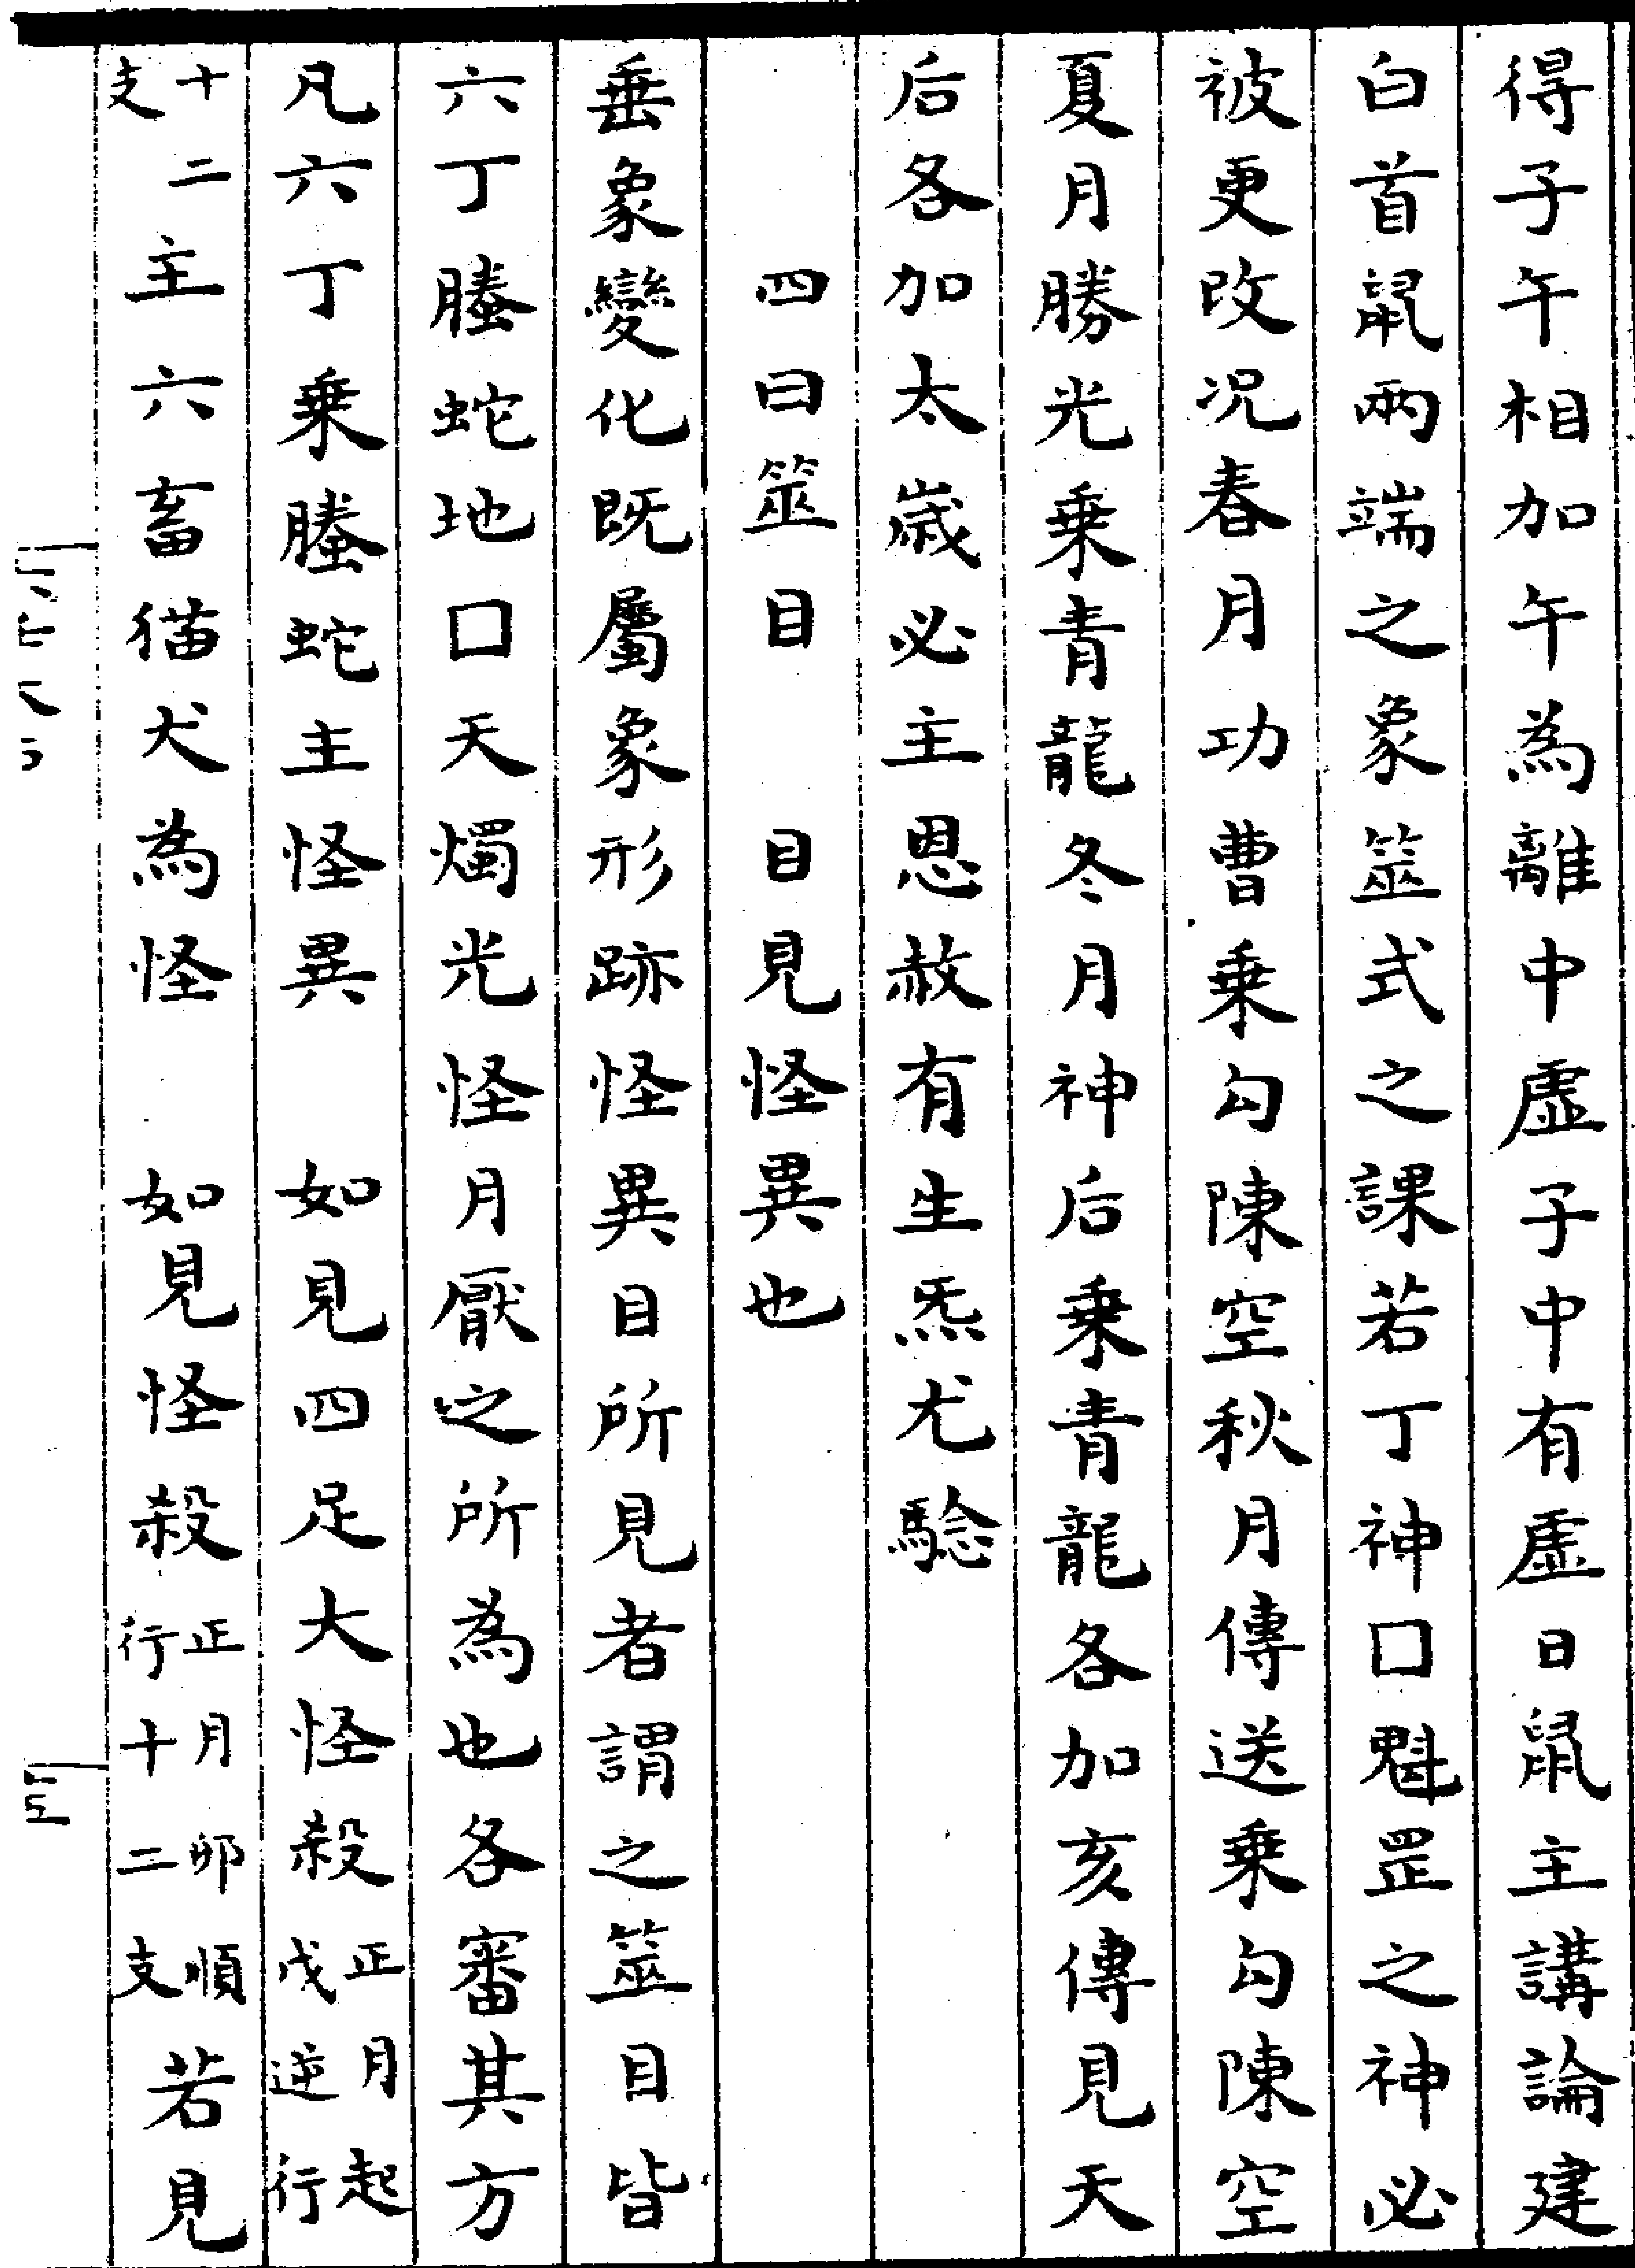 得子午相加午為離中虛子中有虛日鼠主講論建
白首鼠兩端之象筮式之課若丁神口魁罡之神必
被更改況春月功曹乘勾陳空秋月傳送乘勾陳空
夏月勝光乘青龍冬月神后乘青龍各加亥傳見天
后各加太歲必主恩赦有生炁尤驗
四曰筮目　目見怪異也
垂象變化既屬象形跡怪異目所見者謂之筮目皆
六丁螣蛇地口天燭光怪月厭之所為也各審其方
凡六丁乘螣蛇主怪異　如見四足大怪殺正月起戌逆行
十二支主六畜猫犬為怪　如見怪殺正月卯順行十二支若見